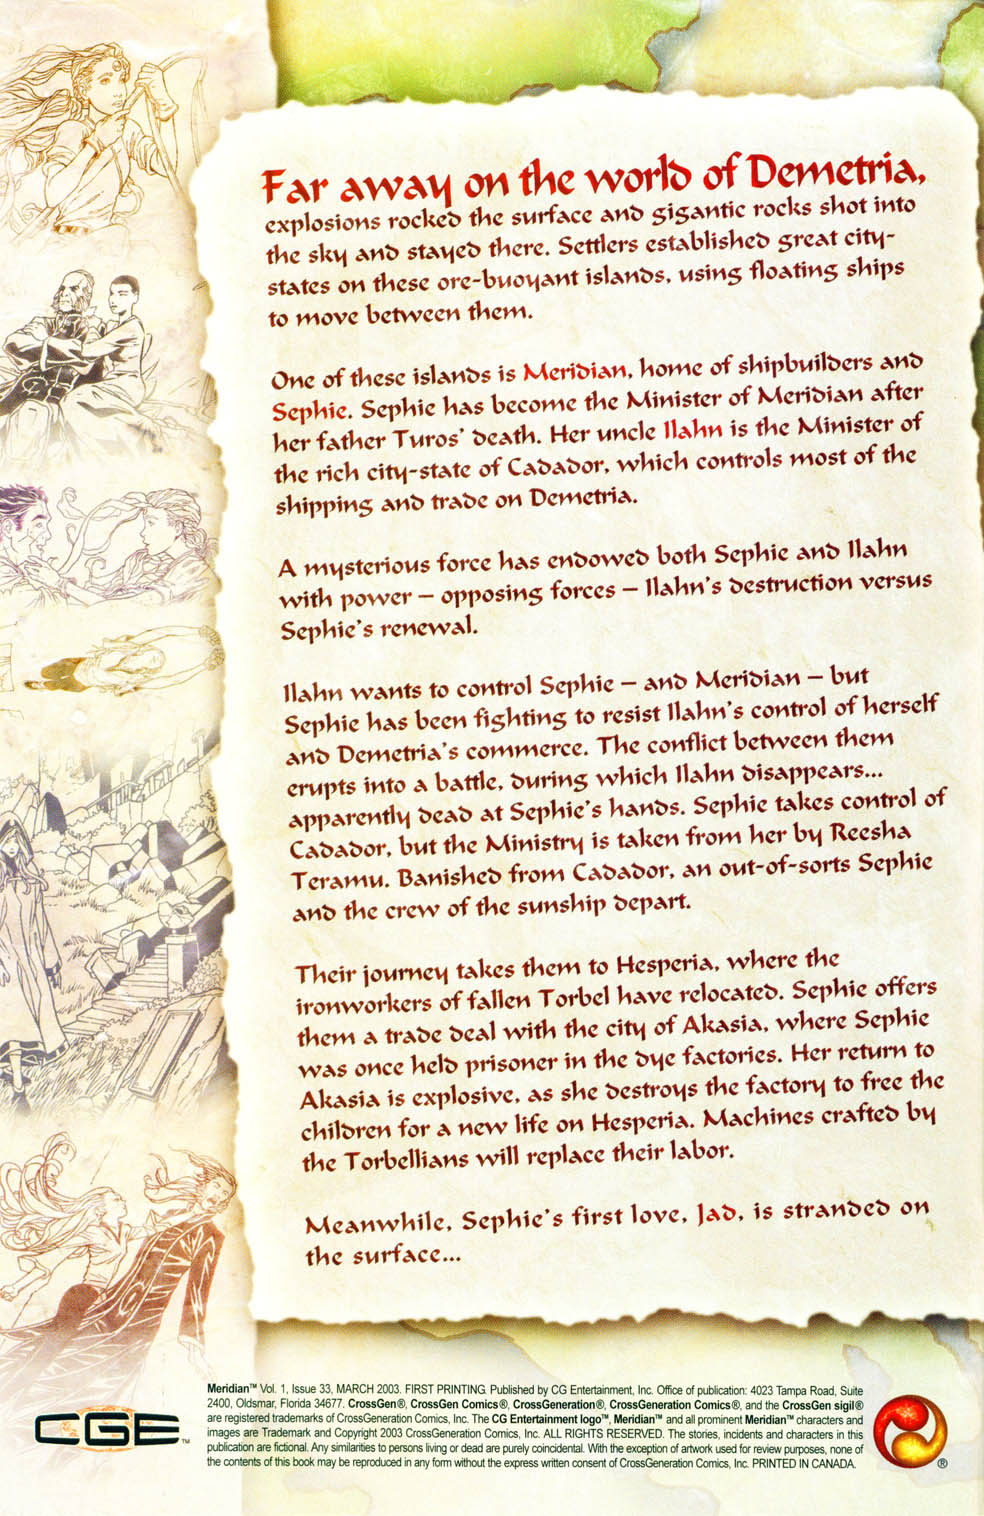 Far away on the world of Demetria,
explosions rocked the surface and gigantic rocks shot into
the sky and stayed there. Settlers established great city-
states on these ore-buoyant islands, using floating ships
to move between them.
One of these islands is Meridian, home of shipbuilders and
Sephie. Sephie has become the Minister of Meridian after
her father Turos' death. Her uncle Ilahn is the Minister of
the rich city-state of Cadador, which controls most of the
shipping and trade on Demetria.
A mysterious force has endowed both Sephie and Ilahn
with power – opposing forces – Ilahn's destruction versus
Sephie's renewal.
Ilahn wants to control Sephie – and Meridian – but
Sephie has been fighting to resist Ilahn's control of herself
and Demetria's commerce. The conflict between them
erupts into a battle, during which Ilahn disappears...
apparently dead at Sephie's hands. Sephie takes control of
Cadador, but the Ministry is taken from her by Reesha
Teramu. Banished from Cadador, an out-of-sorts Sephie
and the crew of the sunship depart.
Their journey takes them to Hesperia, where the
ironworkers of fallen Torbel have relocated. Sephie offers
them a trade deal with the city of Akasia, where Sephie
was once held prisoner in the dye factories. Her return to
Akasia is explosive, as she destroys the factory to free the
children for a new life on Hesperia. Machines crafted by
the Torbellians will replace their labor.
Meanwhile, Sephie's first love, Jad, is stranded on
the surface...
Meridian™ Vol. 1, Issue 33, MARCH 2003. FIRST PRINTING. Published by CG Entertainment, Inc. Office of publication: 4023 Tampa Road, Suite
2400, Oldsmar, Florida 34677. CrossGen®, CrossGen Comics®, CrossGeneration®, CrossGeneration Comics®, and the CrossGen sigil®
are registered trademarks of CrossGeneration Comics, Inc. The CG Entertainment logo™, Meridian™ and all prominent Meridian™ characters and
images are Trademark and Copyright 2003 CrossGeneration Comics, Inc. ALL RIGHTS RESERVED. The stories, incidents and characters in this
publication are fictional. Any similarities to persons living or dead are purely coincidental. With the exception of artwork used for review purposes, none of
the contents of this book may be reproduced in any form without the express written consent of CrossGeneration Comics, Inc. PRINTED IN CANADA.
CGE™
®